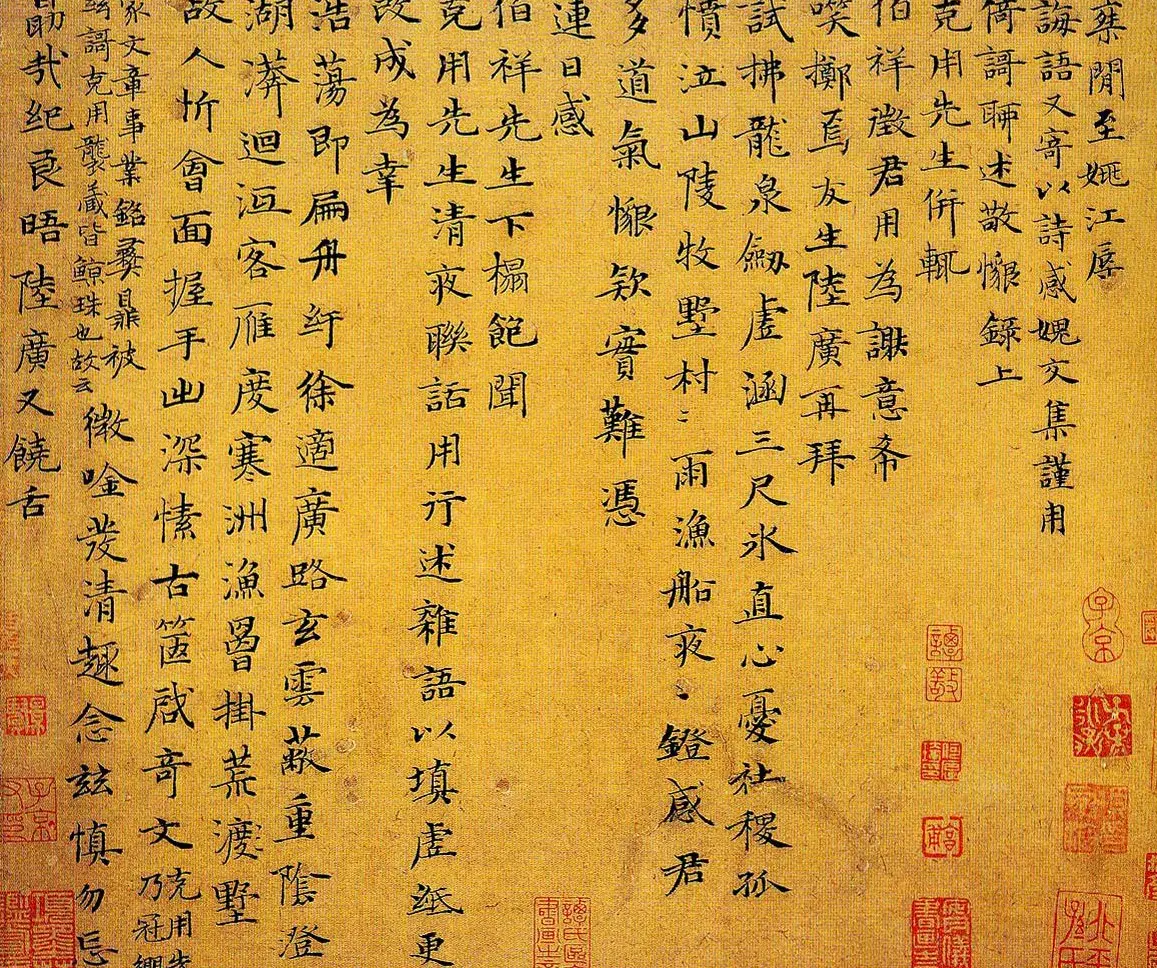 棄閒至姚江辱
誨語又寄以詩感媿交集謹用
倚謌聊述敬懷錄上
克用先生併輒
伯祥徵君用為謝意希
㗛擲焉友生陸廣再拜
試拂龍泉劔虗涵三尺氷直心憂社稷孤
憤泣山陵牧墅村〻雨漁船夜〻鐙感君
多道氣懷欵實難憑
連日感
伯祥先生下榻飽聞
克用先生清夜聯話用行述雜語以填虗紙更
改成為幸
浩蕩即扁舟紆徐適廣路玄雲蔽重陰澄
湖漭迴沍客雁度寒洲漁罾掛荒渡墅
故人忻會面握手出深愫古篋啟奇文克用先
乃冠
家文章事業銘彝鼎被
謌克用襲藏皆鯨珠也故云
微唫發清趣念茲慎勿忘
勖哉紀良晤陸廣又饒舌